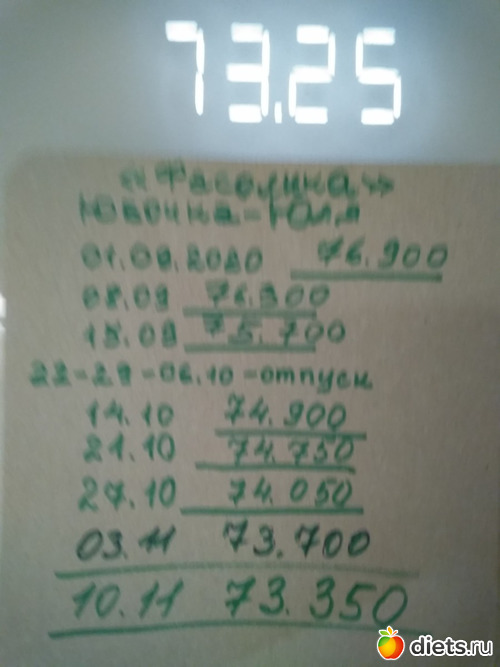 73.25
«Фасолинка»
Ювочка-Юля
01.09.2020 76.900
08.09 76.300
15.09 75.700
22-29-06.10-отпуск
14.10 74.900
21.10 74.750
27.10 74.050
03.11 73.700
10.11 73.350
diets.ru